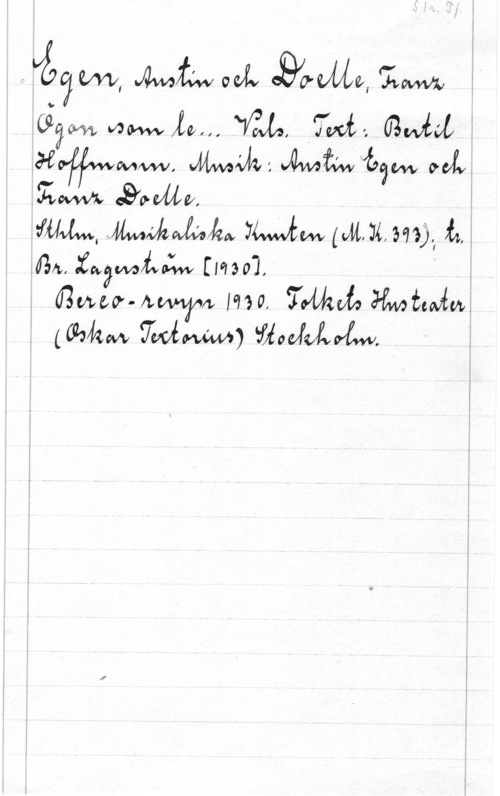 Egen, Austin och Doelle, Franz
Ögon som le... Vals. Text: Bertil
Hoffmann. Musik: Austin Egen och
Franz Doelle.
Sthlm, Musikaliska Knuten (M.K. 393), tr.
Br. Lagerström [1930].
Berco-revyn 1930. Folkets Husteater
(Oskar Textorius) Stockholm.